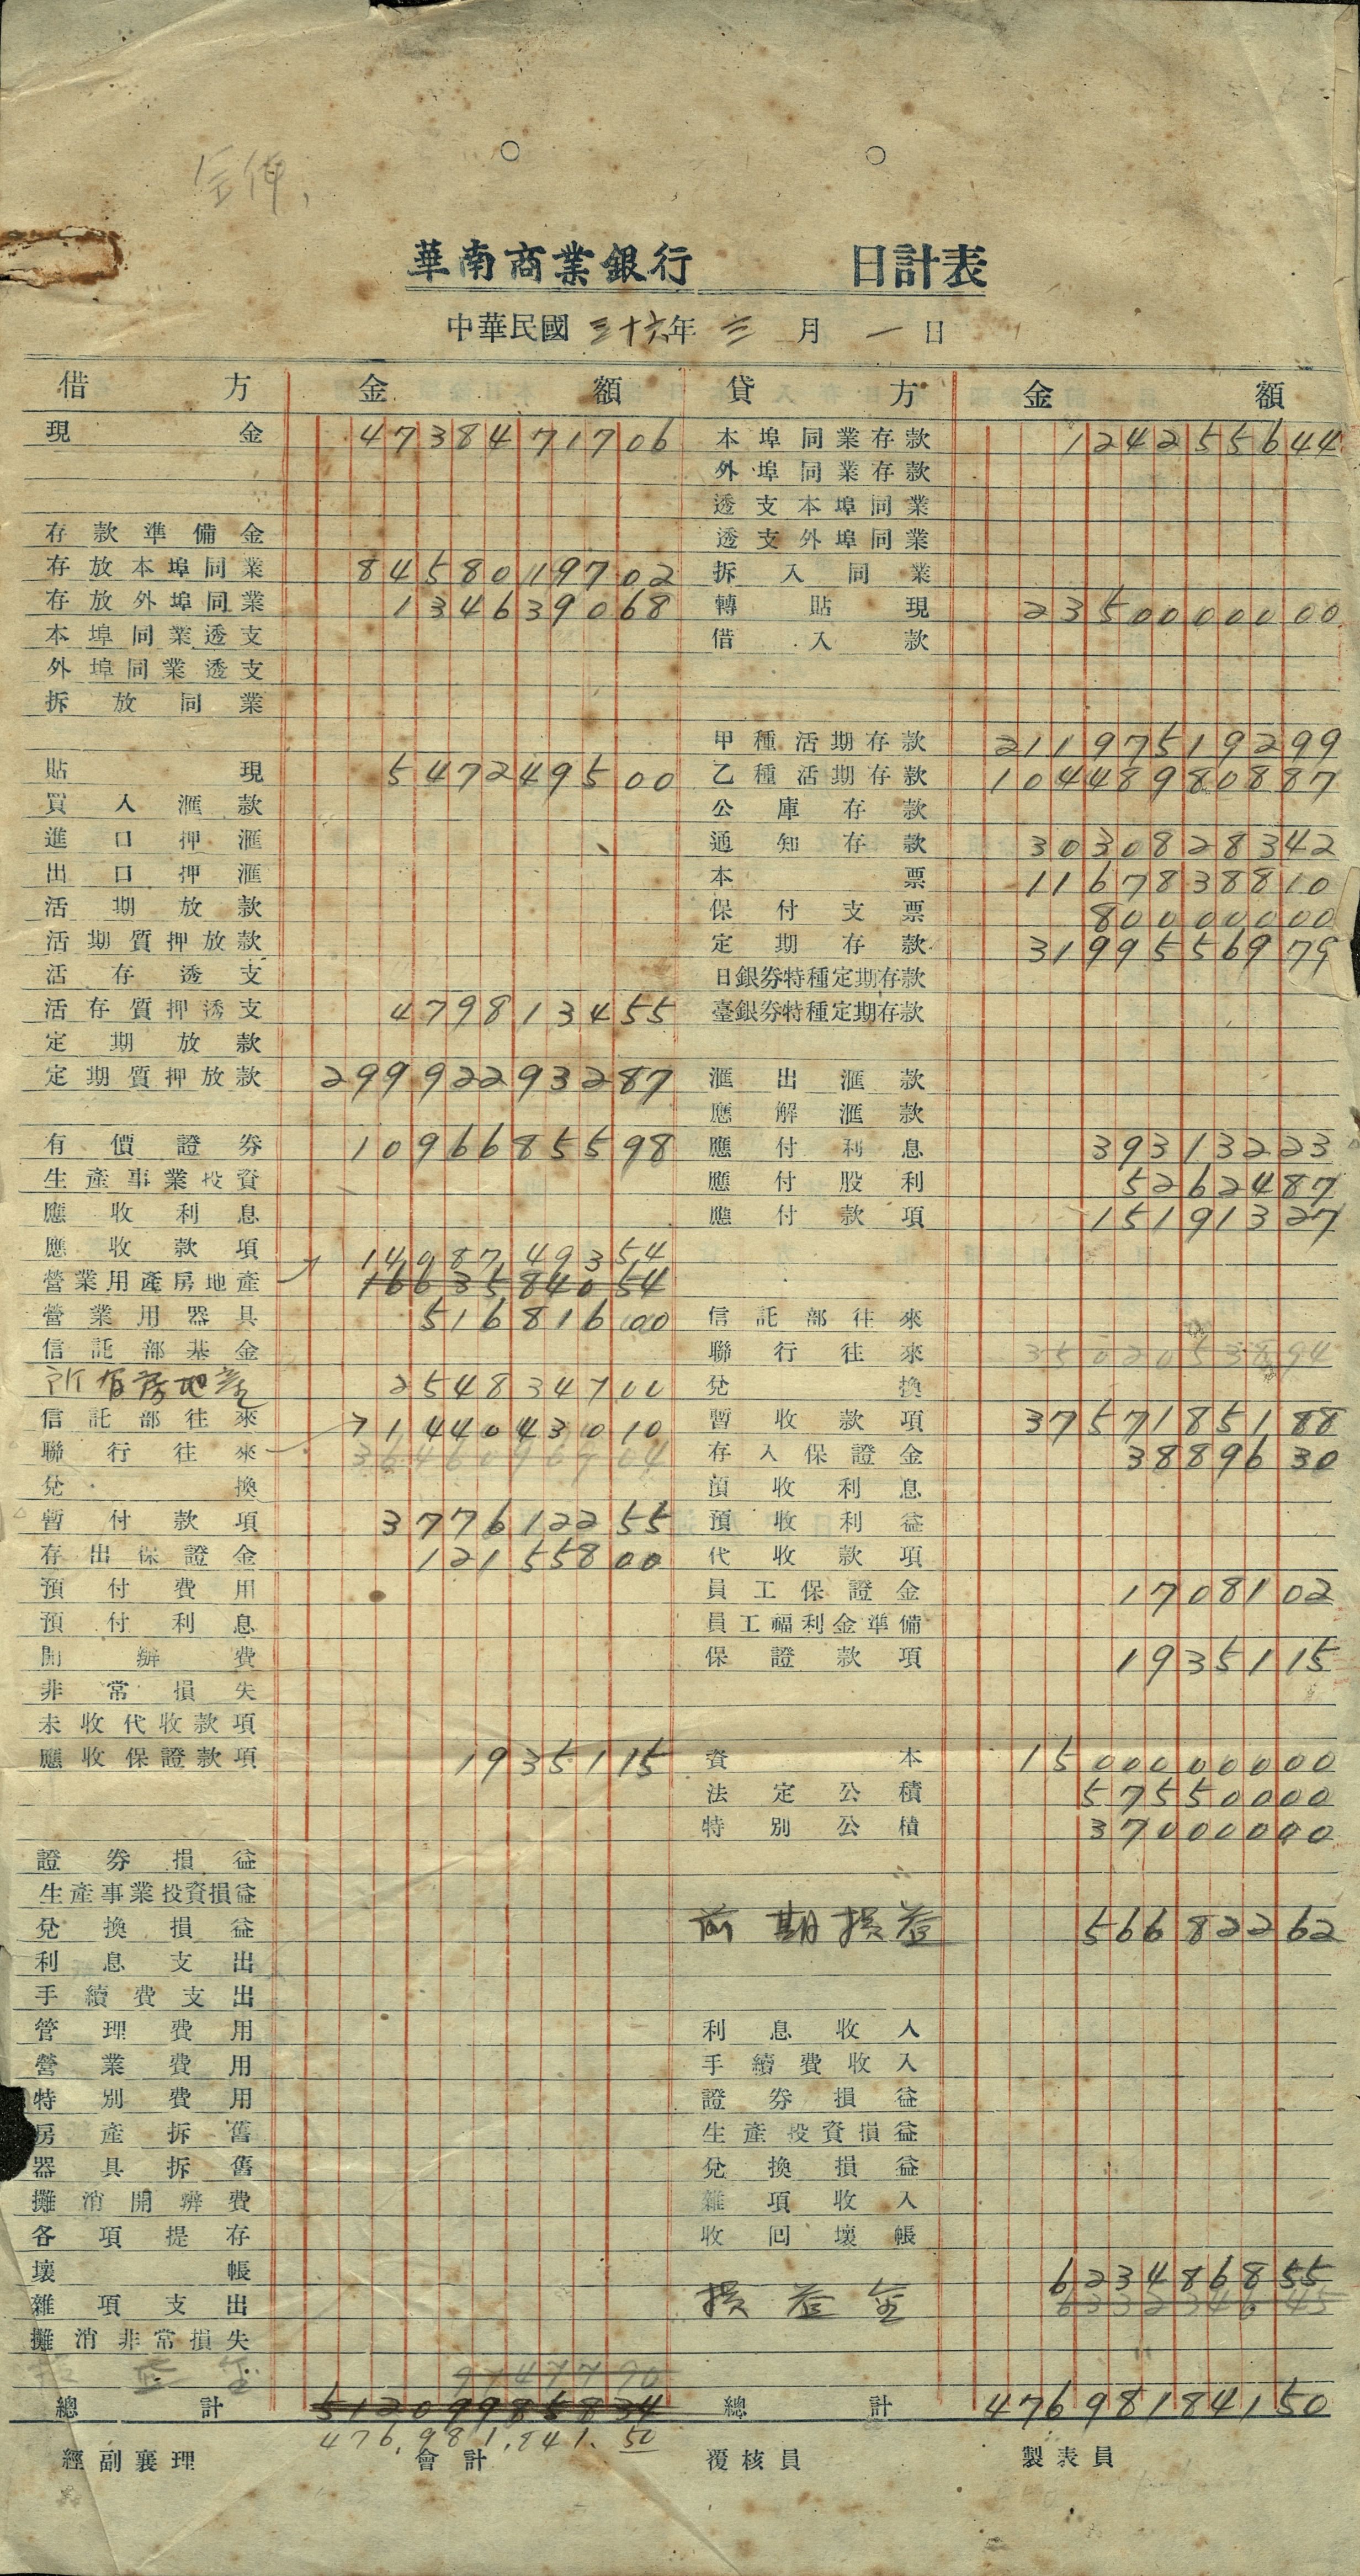 全體
華南商業銀行 日計表
中華民國三十六年 三 月 一 日
借方 金額 貸方 金額
現金 4738471706 本埠同業存款 1242555644
外埠同業存款
透支本埠同業
存款準備金 透支外埠同業
存放本埠同業 84580119702 拆入同業
存放外埠同業 134639068 轉貼現 23500000000
本埠同業透支 借入款
外埠同業透支
拆放同業
甲種活期存款 21197519299
貼現 547249500 乙種活期存款 10448980887
買入滙款 公庫存款
進口押滙 通知存款 3030828342
出口押滙 本票 1167838810
活期放款 保付支票 80000000
活期質押放款 定期存款 3199556979
活存透支 日銀券特種定期存款
活存質押透支 479813455 臺銀券特種定期存款
定期放款
定期質押放款 29992293287 滙出滙款
應解滙款
有價證券 1096685598 應付利息 39313223
生產事業投資 應付股利 5262487
應收利息 應付款項 15191327
應收款項 1408749354
營業用產房地產 1663584054
營業用器具 51681600 信託部往來
信託部基金 聯行往來
所有房地產 254834700 兌換
信託部往來 7144043010 暫收款項 3757185188
聯行往來 存入保證金 3889630
兌換 預收利息
暫付款項 377612255 預收利益
存出保證金 12155800 代收款項
預付費用 員工保證金 1708102
預付利息 員工福利金準備
開辦費 保證款項 1935115
非常損失
未收代收款項
應收保證款項 1935115 資本 1500000000
法定公積 57550000
特別公積 37000000
證券損益
生產事業投資損益
兌換損益 前期損益 56682262
利息支出
手續費支出
管理費用 利息收入
營業費用 手續費收入
特別費用 證券損益
房產拆舊 生產投資損益
器具拆舊 兌換損益
攤消開辦費 雜項收入
各項提存 收回壞帳
壞帳 623486855
雜項支出 損益金
攤消非常損失
損益金
總計 51209985834 總計 47698184150
476,981,841.50
經副襄理 會計 覆核員 製表員